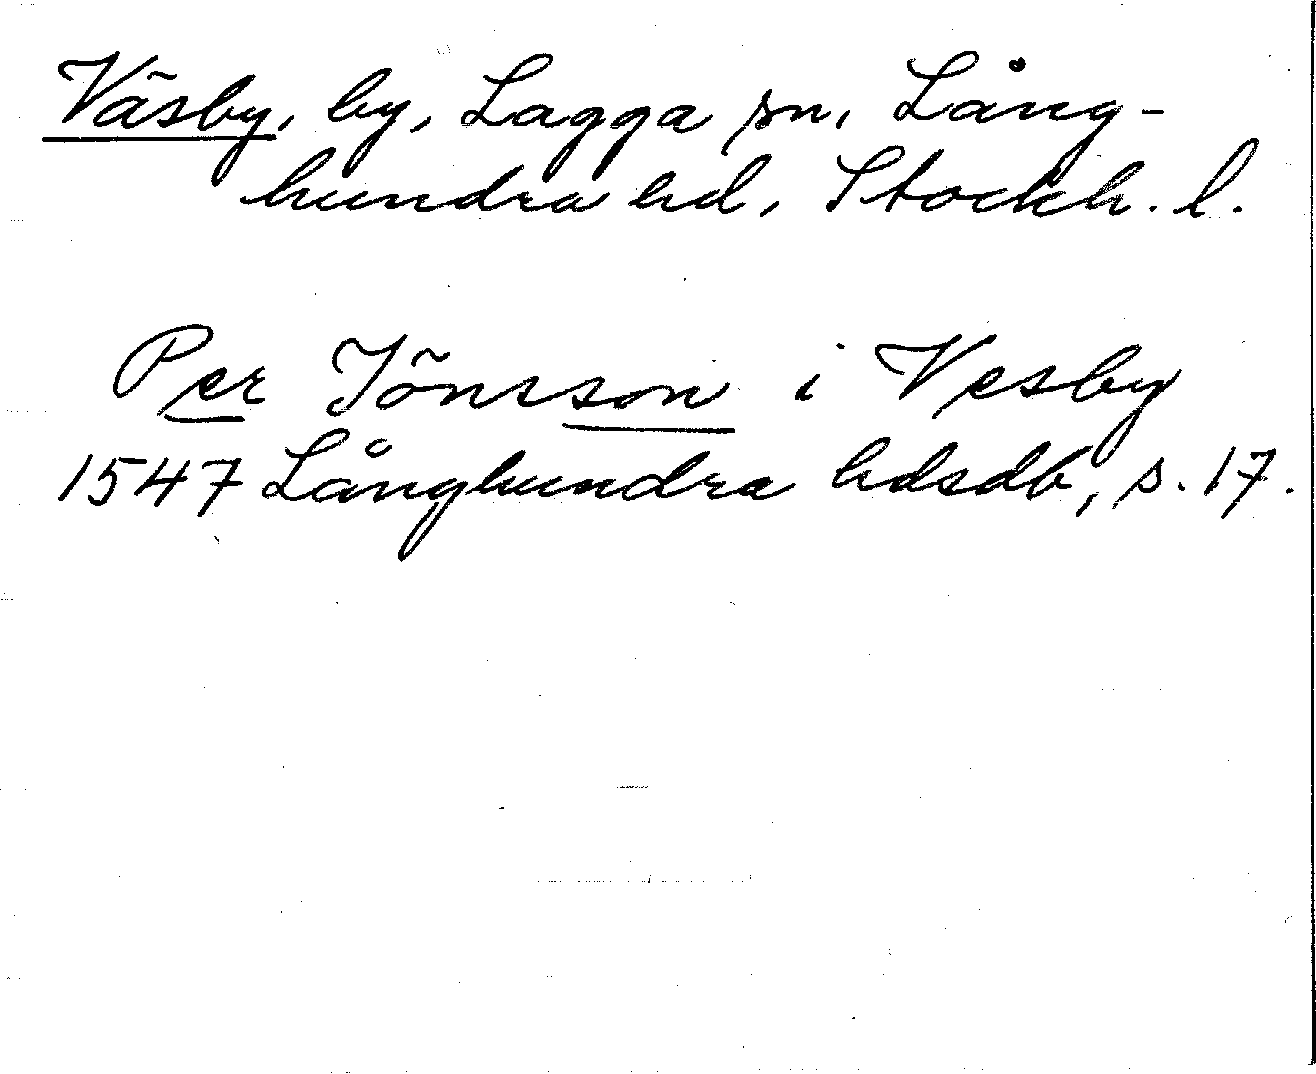 Väsby, by, Lagga sn, Lång-
hundra hd, Stockh. l.
Per Jönsson i Vesby
1547 Långhundra hdsdb, s. 17.